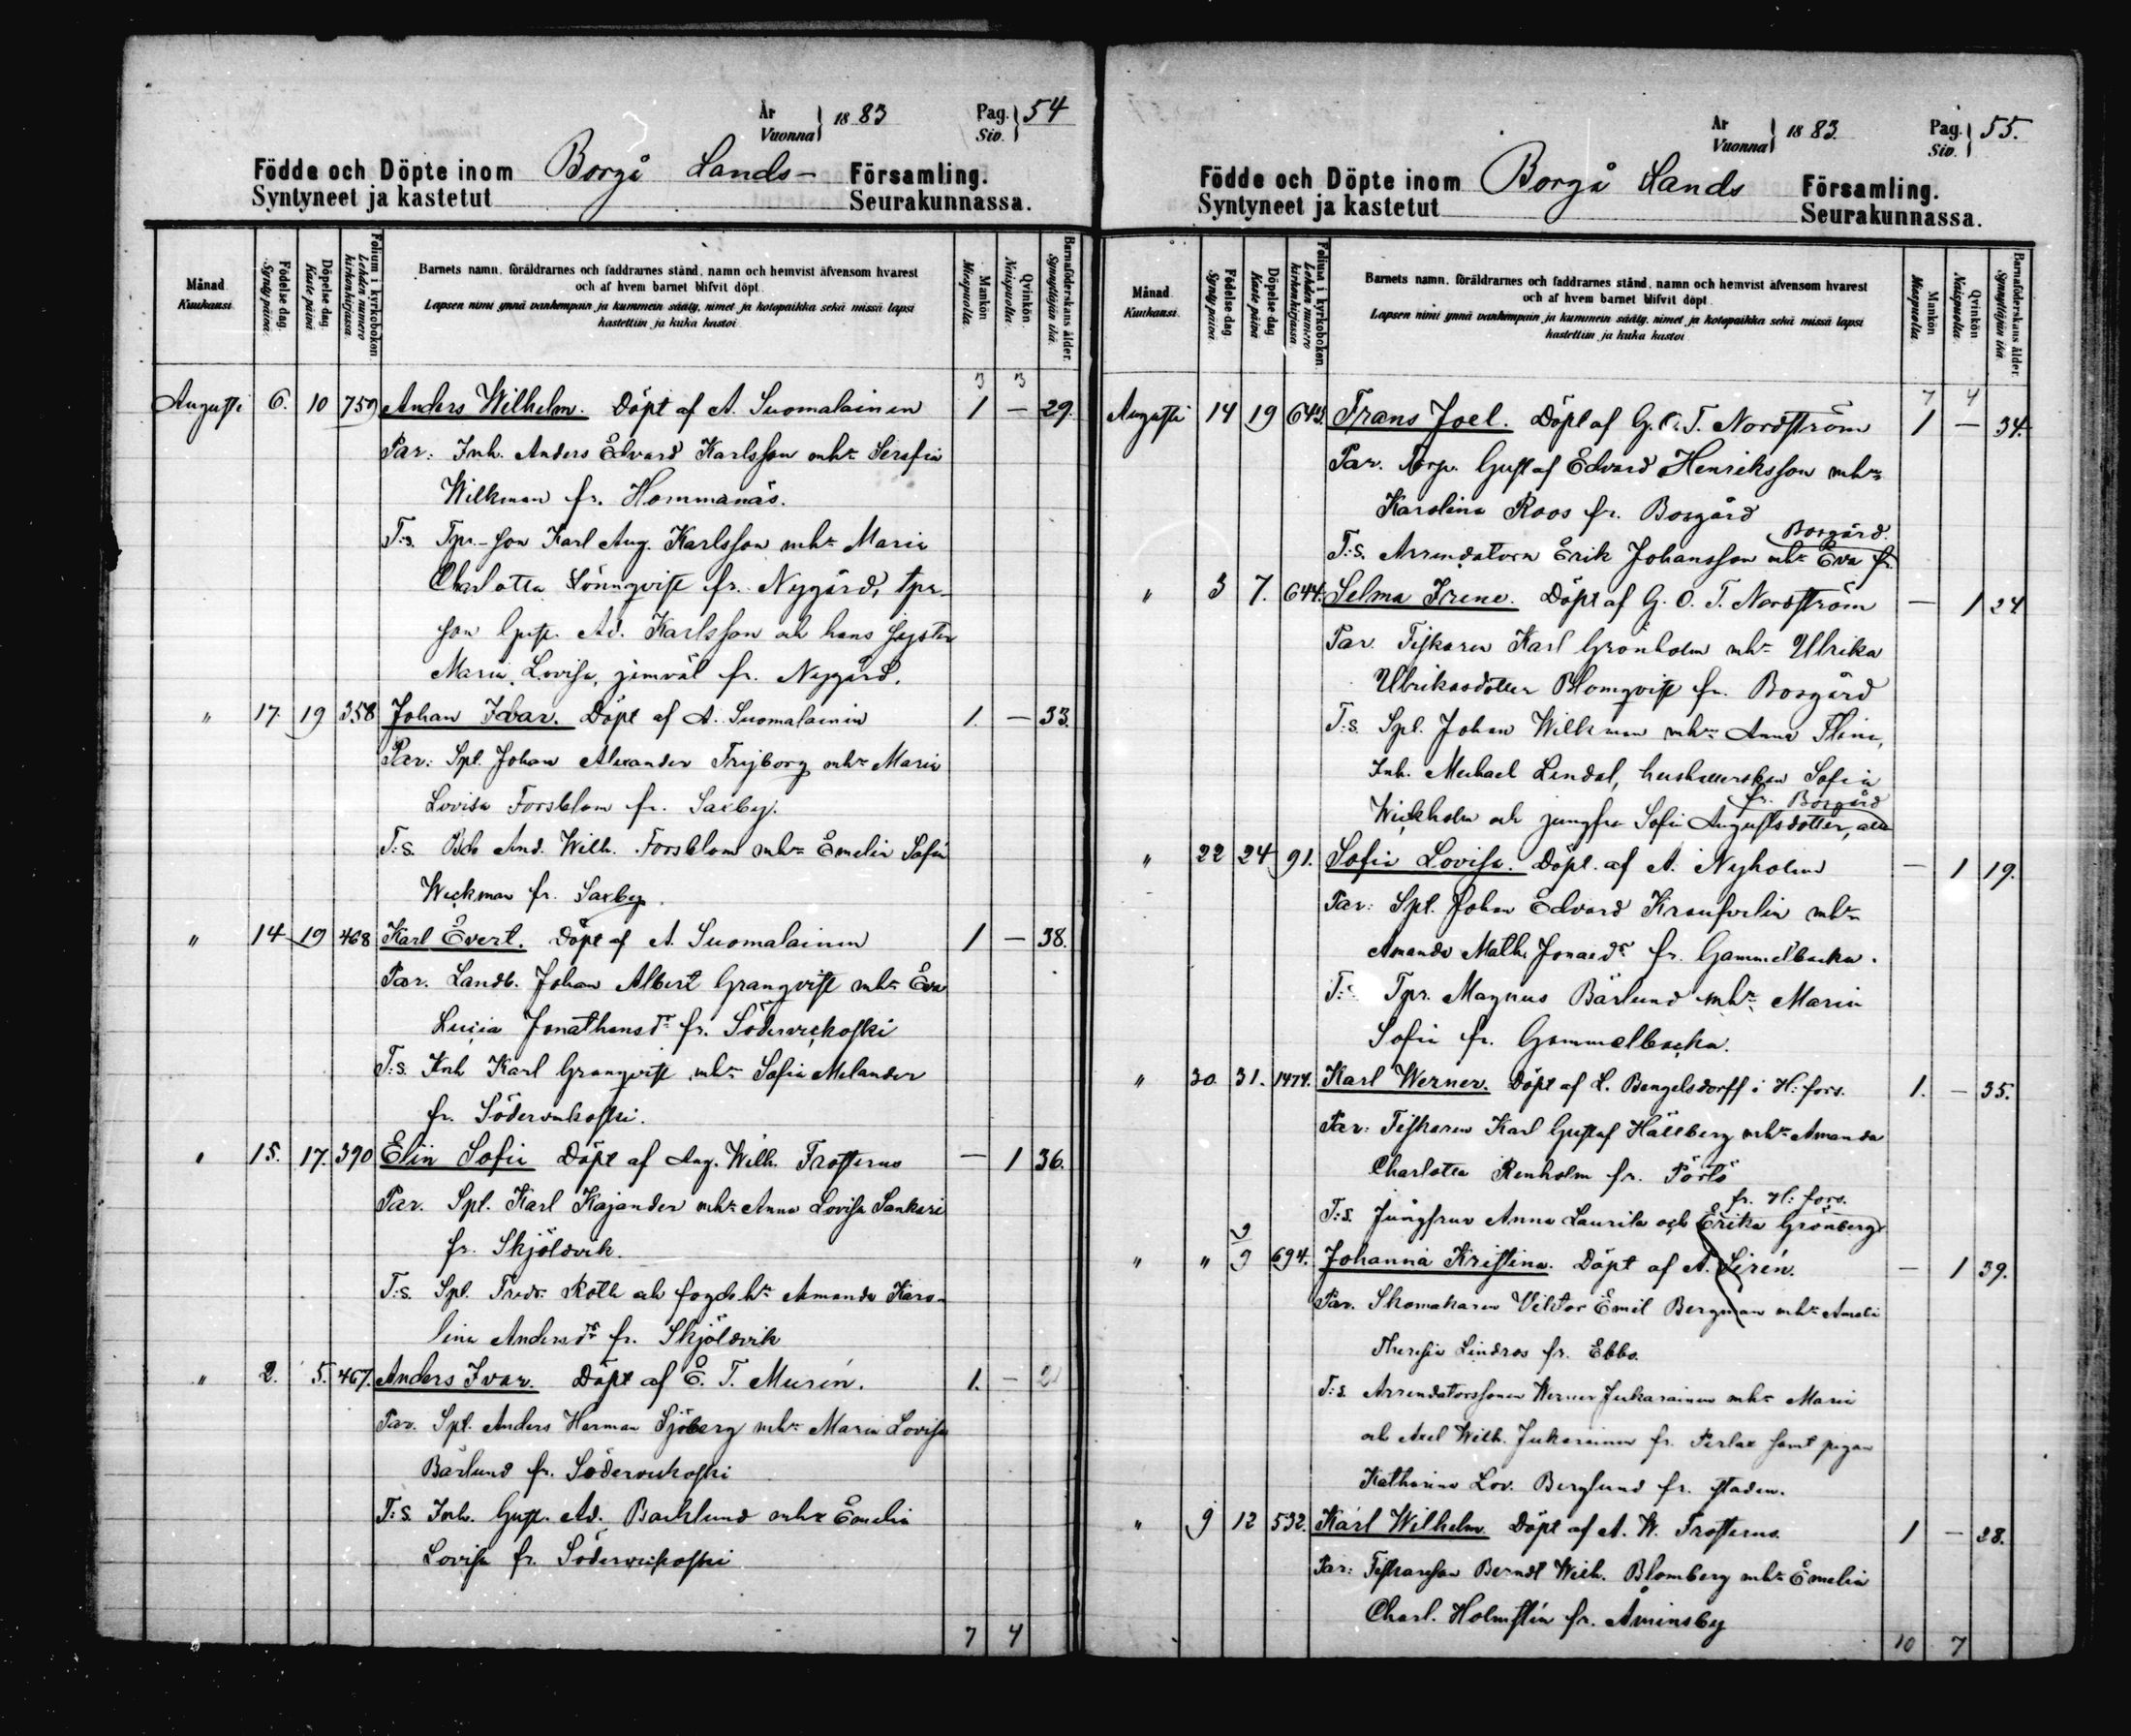 År
Vuonna } 1883
Pag.
Siv. } 54
Födde och Döpte inom Borgå Lands- Församling.
Syntyneet ja kastetut Seurakunnassa.
Månad
Kuukausi
Födelse dag.
Synty päivä.
Döpelse dag.
Kaste päivä
Folium i kyrkoboken
Lehden numero kirkonkirjassa.
Barnets namn, föräldrarnes och faddrarnes stånd, namn och hemvist äfvensom hvarest
och af hvem barnet blifvit döpt.
Lapsen nimi ynnä vanhempain ja kummein sääty, nimet ja kotopaikka sekä missä lapsi
kastettiin ja kuka kastoi
Mankön
Miespuolta.
Qvinkön
Naispuolta.
Barnaföderskans ålder.
Synnyttäjän ikä.
3 3
Augusti 6. 10 759 Anders Wilhelm. Döpt af A. Suomalainen 1 — 29.
Par: Inh. Anders Edvard Karlsson mhr Serafia
Wilkman fr. Hommanäs.
T:s. Tpr-son Karl Aug. Karlsson mhr Maria
Charlotta Lönnqvist fr. Nygård, tpr-
son Gust. Ad. Karlsson och hans syster
Maria Lovisa, jemväl fr. Nygård.
" 17. 19 358 Johan Ivar. Döpt af A. Suomalainen 1. — 33.
Par: Spl. Johan Alexander Frijborg mhr Maria
Lovisa Forsblom fr. Saxby.
T:s. And. Wilh. Forsblom mhr Emelia Sofia
Weckman fr. Saxby.
" 14 19 468 Karl Evert. Döpt af A. Suomalainen 1 — 38.
Par. Landb. Johan Albert Granqvist mhr Eva
Lucia Jonathansdr fr. Söderveckoski
T:s. Inh Karl Granqvist mhr Sofia Melander
fr. Söderveckoski.
" 15. 17. 390 Elin Sofia Döpt af Aug. Wilh. Frosterus — 1 36.
Par. Spl. Karl Kajander mhr Anna Lovisa Sankari
fr. Skjöldvik.
T:s. Spl. Fredr. Roth och fogdehr Amanda Karo-
lina Andersdr fr. Skjöldvik
" 2. 5. 467. Anders Ivar. Döpt af E. T. Murén. 1. —
Par. Spl. Anders Herman Sjöberg mhr Maria Lovisa
Bärlund fr. Söderveckoski
T:s. Inh. Gust. Ad. Backlund mhr Emelia
Lovisa fr. Söderveckoski
7 4
År
Vuonna } 1883.
Pag.
Siv. } 55.
Födde och Döpte inom Borgå Lands Församling.
Syntyneet ja kastetut Seurakunnassa.
Månad
Kuukausi.
Födelse dag.
Synty päivä.
Döpelse dag
Kaste päivä
Folium i kyrkoboken
Lehden numero kirkonkirjassa.
Barnets namn, föräldrarnes och faddrarnes stånd, namn och hemvist äfvensom hvarest
och af hvem barnet blifvit döpt
Lapsen nimi ynnä vanhempain ja kummein sääty, nimet ja kotopaikka sekä missä lapsi
kastettiin ja kuka kastoi
Mankön
Miespuolta.
Qvinkön
Naispuolta.
Barnaföderskans ålder.
Synnyttäjän ikä.
7 4
Augusti 14 19 643. Frans Joel. Döpt af G. O. T. Nordström 1 — 34.
Par. Torp. Gustaf Edvard Henriksson mhr
Karolina Roos fr. Bosgård
Bosgård.
T:s. Arrendatorn Erik Johansson mhr Eva fr.
" 3 7. 644. Selma Irene. Döpt af G. O. T. Nordström — 1 24
Par. Fiskaren Karl Grönholm mhr Ulrika
Ulrikasdotter Blomqvist fr. Bosgård
T:s. Spl. Johan Wilkman mhr Anna
Inh. Michael Lindal, hushållerskan Sofia
fr. Bosgård
Wickholm och jungfru Sofia Augustsdotter, alla
" 22 24 91. Sofia Lovisa. Döpt. af A. Nyholm — 1 19.
Par: Spl. Johan Edvard Kraufvelin mhr
Amanda Math. Jonasdr fr. Gammelbacka.
T:s Tpr. Magnus Bärlund mhr Maria
Sofia fr. Gammelbacka.
" 30. 31. 1474. Karl Werner. Döpt af L. Bengelsdorff i H:fors. 1. — 35.
Par: Fiskaren Karl Gustaf Hällberg mhr Amanda
Charlotta Renholm fr. Pörtö
fr. H:fors.
T:s. Jungfrur Anna Laurila och Erika Grönberg
" " 9/9 694. Johanna Kristina. Döpt af A. Sirén. — 1 39.
Par. Skomakaren Viktor Emil Bergman mhr Amalia
Theresia Lindros fr. Ebbo.
T:s. Arrendatorssonen Werner Jukarainen mhr Maria
och Axel Wilh. Jukarainen fr. Perlax samt pigan
Katharina Lov. Berglund fr. staden.
" 9 12 532. Karl Wilhelm. Döpt af A. W. Frosterus. 1 — 28.
Par: Fiskareson Berndt Wilh. Blomberg mhr Emelia
Charl. Holmstén fr. Åminsby
10 7